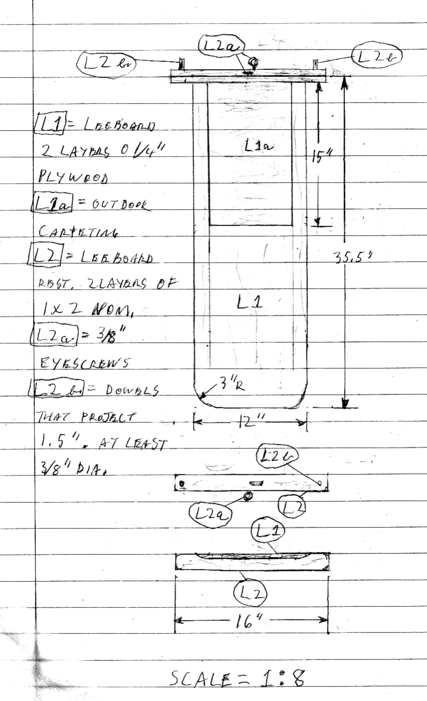 L2a
L2b
L2b
L1 = LEEBOARD
2 LAYERS O 1/4"
PLYWOOD
L1a = OUTDOOR
CARPETING
L2 = LEEBOARD
REST, 2 LAYERS OF
1 x 2 NOM.
L2a = 3/8"
EYESCREWS
L2b = DOWELS
THAT PROJECT
1.5". AT LEAST
3/8" DIA.
L1a
15"
35.5"
L1
3"R
12"
L2b
L2a
L2
L1
L2
16"
SCALE = 1:8